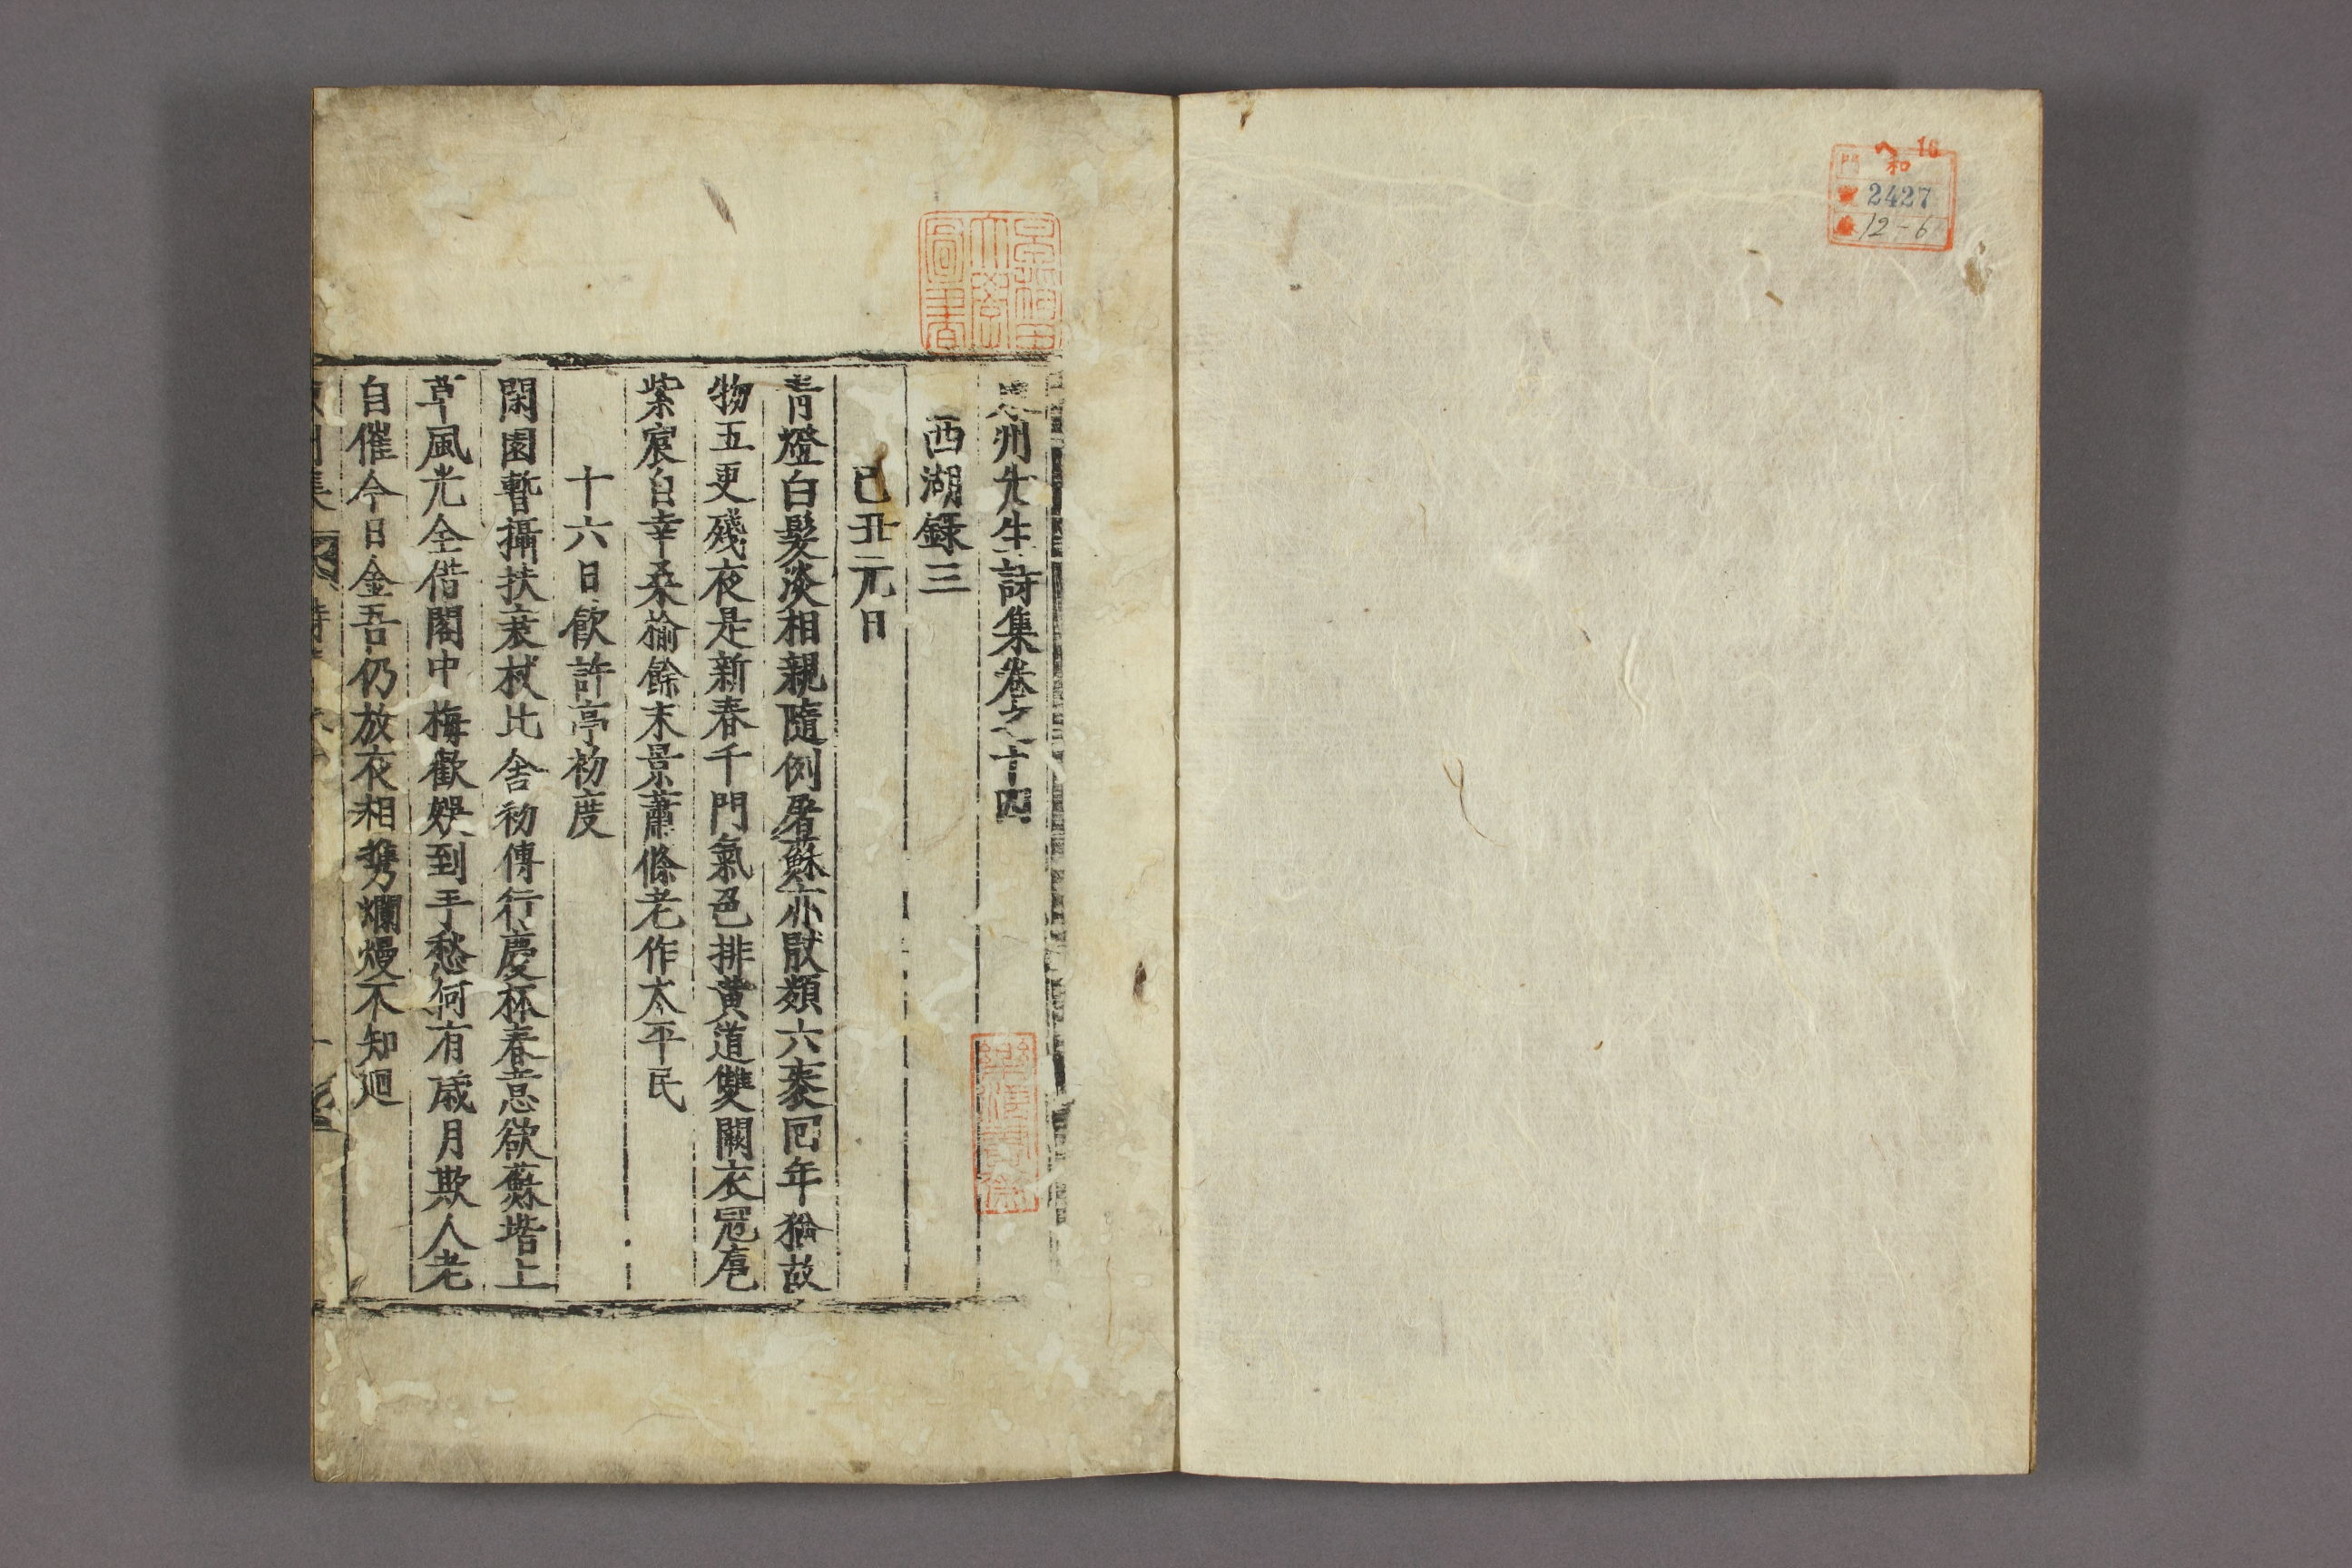 和
16
2427
12-6
思州先生詩集卷之十四
西湖録三
己丑元日
青燈白髮淡相親隨例屠蘇亦猒頻六袠囘年猶故
物五更殘夜是新春千門氣色排黄道雙闕衣冠扈
紫宸自幸桑揄餘末景蕭條老作太平民
十六日飲許亭初度
閑園暫攝扶衰杖比舍初傳行慶杯春意欲蘇堦上
草風光全借閣中梅歡娛到手愁何有歳月欺人老
自催今日金吾仍放夜相携爛熳不知廻